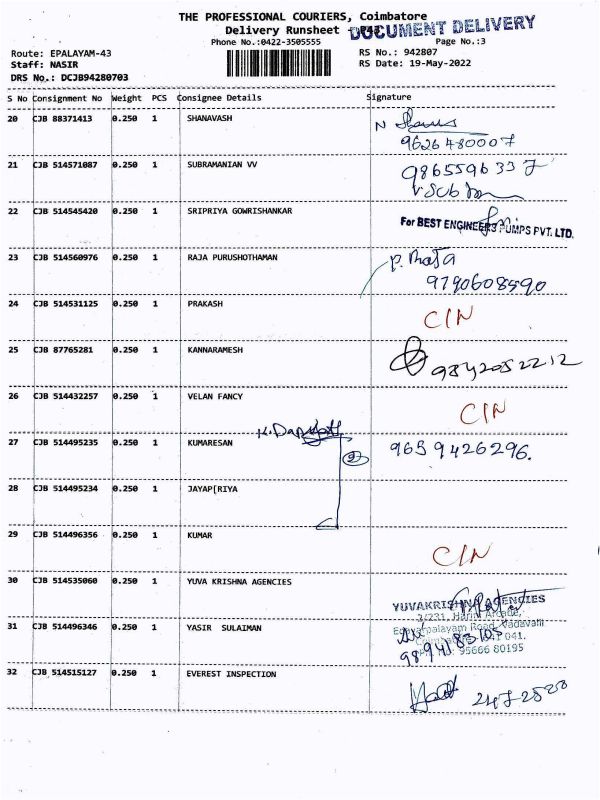 THE PROFESSIONAL COURIERS, Coimbatore
Delivery Runsheet -
DOCUMENT DELIVERY
Phone No.:0422-3505555
Page No.:3
Route: EPALAYAM-43
RS No.: 942807
Staff: NASIR
RS Date: 19-May-2022
DRS No.: DCJB94280703
S No Consignment No Weight PCS Consignee Details Signature
20 CJB 88371413 0.250 1 SHANAVASH
9626480007
21 CJB 514571087 0.250 1 SUBRAMANIAN VV
9865596337
22 CJB 514545420 0.250 1 SRIPRIYA GOWRISHANKAR
For BEST ENGINEERS PUMPS PVT. LTD.
23 CJB 514560976 0.250 1 RAJA PURUSHOTHAMAN
P. Raja
9790608590
24 CJB 514531125 0.250 1 PRAKASH
C/N
25 CJB 87765281 0.250 1 KANNARAMESH
9842052212
26 CJB 514432257 0.250 1 VELAN FANCY
C/N
27 CJB 514495235 0.250 1 KUMARESAN
9659426296.
2
28 CJB 514495234 0.250 1 JAYAP[RIYA
29 CJB 514496356 0.250 1 KUMAR
C/N
30 CJB 514535060 0.250 1 YUVA KRISHNA AGENCIES
YUVAKRISHNA AGENCIES
31 CJB 514496346 0.250 1 YASIR SULAIMAN
9894183105
95666 80195
32 CJB 514515127 0.250 1 EVEREST INSPECTION